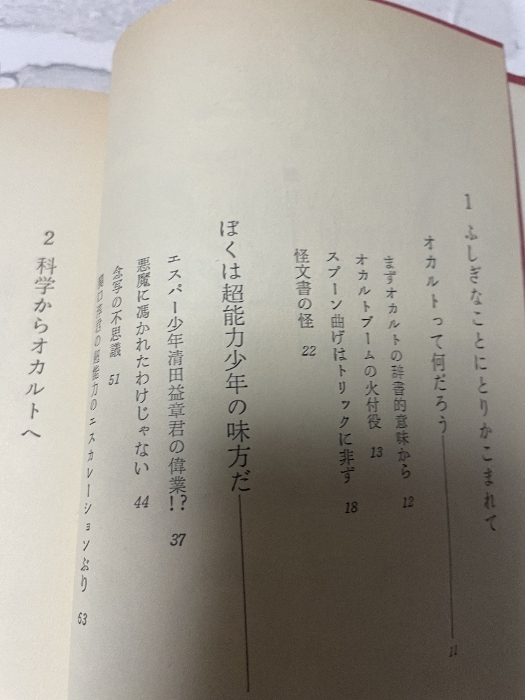 1 ふしぎなことにとりかこまれて
オカルトって何だろう 11
まずオカルトの辞書的意味から 12
オカルトブームの火付役 13
スプーン曲げはトリックに非ず 18
怪文書の怪 22
ぼくは超能力少年の味方だ
エスパー少年清田益章君の偉業!? 37
悪魔に馮かれたわけじゃない 44
念写の不思議 51
の超能力のエスカレーションぶり 63
2 科学からオカルトへ